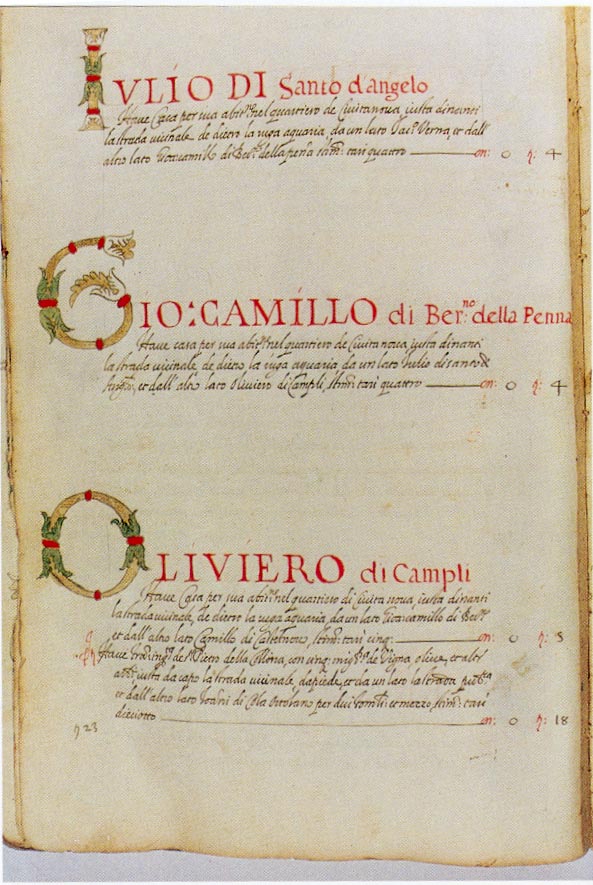 IVLIO DI Santo d'angelo
Haue Casa per sua abit:ne nel quartiero de Ciuitanoua, iusta dinanti
la strada uicinale, de dietro la ruga aquaria, da un lato Iac:o Verna, et dall'
altro lato Giocamillo di Ber:no della penna stim: tarì quattro on: 0 tì: 4
GIO: CAMILLO di Ber:no della Penna
Haue casa per sua abit:ne nel quartiero de Ciuita noua, iusta dinanti
la strada uicinale, de dietro la ruga aquaria, da un lato Iulio di santo d'
Angelo, et dall' altro lato Oliuiero di Campli, stim: tarì quattro on: 0 tì: 4
OLIVIERO di Campli
Haue Casa per sua abit:ne nel quartiero di Ciuita noua, iusta dinanti
la strada uicinale, de dietro la ruga aquaria, da un lato Giocamillo di Ber:no
et dall' altro lato Camillo di stim: tarì cinq: on: 0 tì: 5
Haue de S:to Pietro della con cinq: de Vigna, oliue, et altri
iusta da capo la strada uicinale, da piede, et da un lato la strada pub:ca
et dall' altro lato di Cola Ortolano per dui et mezzo stim: tarì
dieciotto on: 0 tì: 18
23